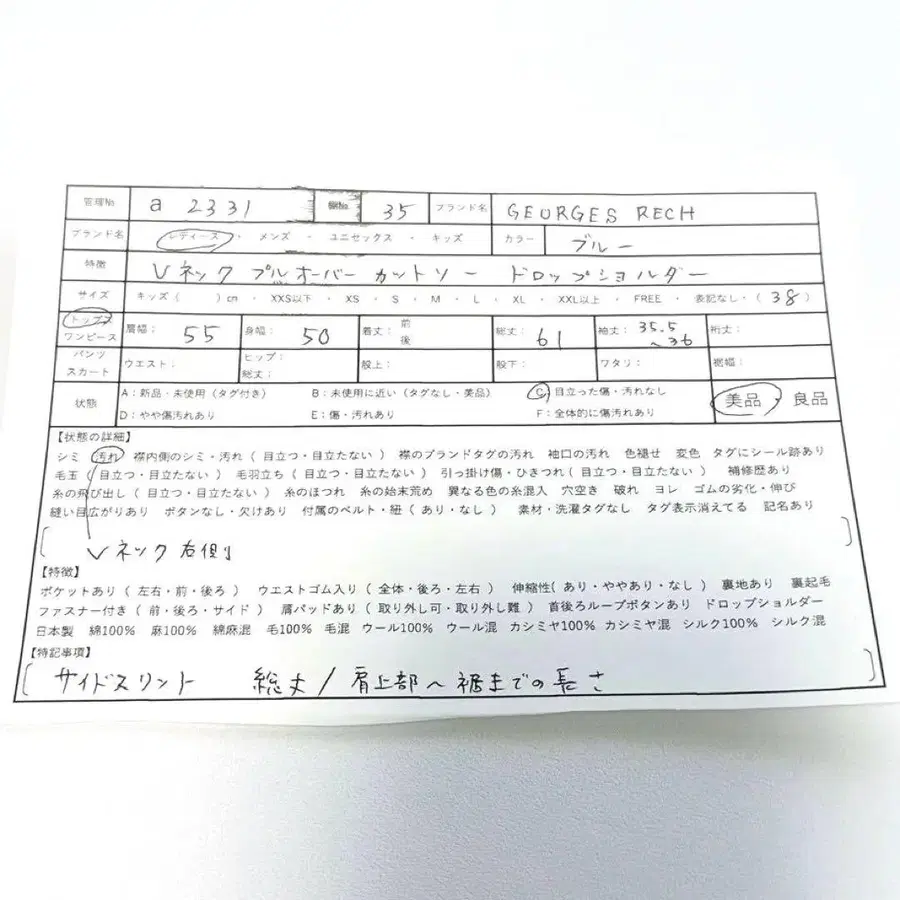 管理№ a 2331 棚№ 35 ブランド名 GEORGES RECH
ブランド名 レディース ・ メンズ ・ ユニセックス ・ キッズ カラー ブルー
特徴 Vネック プルオーバー カットソー ドロップショルダー
サイズ キッズ( )㎝ ・ XXS以下 ・ XS ・ S ・ M ・ L ・ XL ・ XXL以上 ・ FREE ・ 表記なし・( 38 )
トップス
ワンピース 肩幅: 55 身幅: 50 着丈: 前 後 総丈: 61 袖丈: 35.5 ~36 裄丈:
パンツ
スカート ウエスト: ヒップ: 総丈: 股上: 股下: ワタリ: 裾幅:
状態 A:新品・未使用(タグ付き) B:未使用に近い(タグなし・美品) C 目立った傷・汚れなし 美品 ・ 良品
D:やや傷汚れあり E:傷・汚れあり F:全体的に傷汚れあり
【状態の詳細】
シミ 汚れ 襟内側のシミ・汚れ(目立つ・目立たない) 襟のブランドタグの汚れ 袖口の汚れ 色褪せ 変色 タグにシール跡あり
毛玉(目立つ・目立たない) 毛羽立ち(目立つ・目立たない) 引っ掛け傷・ひきつれ(目立つ・目立たない) 補修歴あり
糸の飛び出し(目立つ・目立たない) 糸のほつれ 糸の始末荒め 異なる色の糸混入 穴空き 破れ ヨレ ゴムの劣化・伸び
縫い目広がりあり ボタンなし・欠けあり 付属のベルト・紐(あり・なし) 素材・洗濯タグなし タグ表示消えてる 記名あり
Vネック 右側
【特徴】
ポケットあり(左右・前・後ろ) ウエストゴム入り(全体・後ろ・左右) 伸縮性(あり・ややあり・なし) 裏地あり 裏起毛
ファスナー付き(前・後ろ・サイド) 肩パッドあり(取り外し可・取り外し難) 首後ろループボタンあり ドロップショルダー
日本製 綿100% 麻100% 綿麻混 毛100% 毛混 ウール100% ウール混 カシミヤ100% カシミヤ混 シルク100% シルク混
【特記事項】
サイドスリット 総丈/肩上部~裾までの長さ